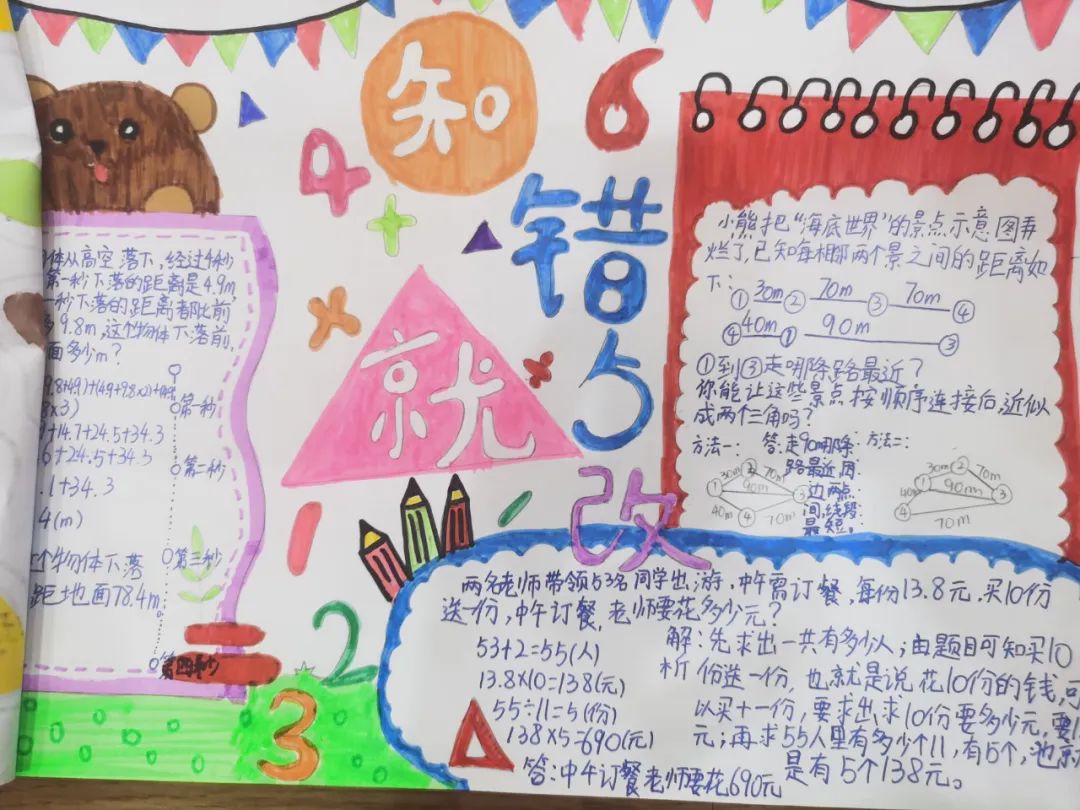 知
错
就
改
4
6
5
1
2
3
体从高空落下,经过4秒
第一秒下落的距离是4.9m,
一秒下落的距离都比前
多9.8m,这个物体下落前,
面多少m?
9.8+4.9)+(4.9+9.8×2)+(4.9
8×3)
+14.7+24.5+34.3
6+24.5+34.3
.1+34.3
4(m)
个物体下落
距地面78.4m
第一秒
第二秒
第三秒
第四秒
小熊把“海底世界”的景点示意图弄
烂了,已知每相邻两个景之间的距离如
下:
①30m② 70m ③ 70m ④
④40m① 90m ③
①到③走哪条路最近?
你能让这些景点按顺序连接后,近似
成两个三角吗?
方法一: 答:走90哪条 方法二:
路最近,因
边两点
间,线段
最短。
30m ② 70m
① 90m ③
40m ④ 70m
30m ② 70m
① 90m ③
40m
④ 70m
两名老师带领53名同学出游,中午需订餐,每份13.8元,买10份
送一份,中午订餐,老师要花多少元?
53+2=55(人)
13.8×10=138(元)
55÷11=5(份)
138×5=690(元)
答:中午订餐老师要花690元
解:先求出一共有多少人;由题目可知买10
析 份送一份,也就是说花10份的钱,可
以买十一份,要求出,求10份要多少元,要1
元;再求55人里有多少个11,有5个,也就
是有5个138元。